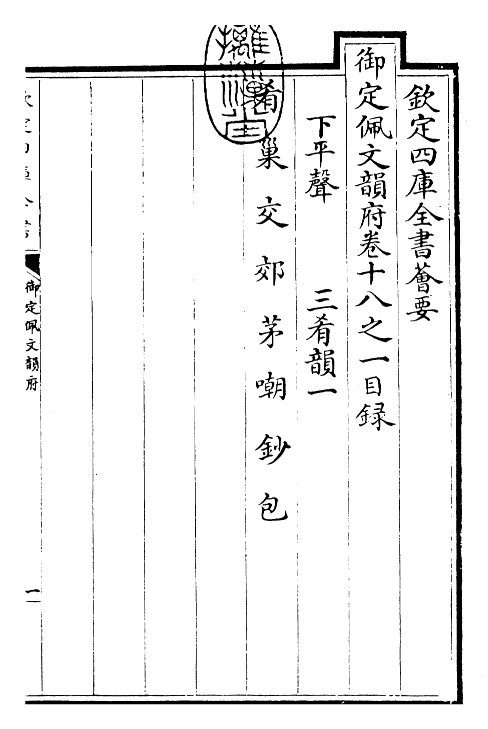 欽定四庫全書薈要
御定佩文韻府卷十八之一目録
下平聲　三肴韻一
肴巢交郊茅嘲鈔包
御定佩文韻府
一